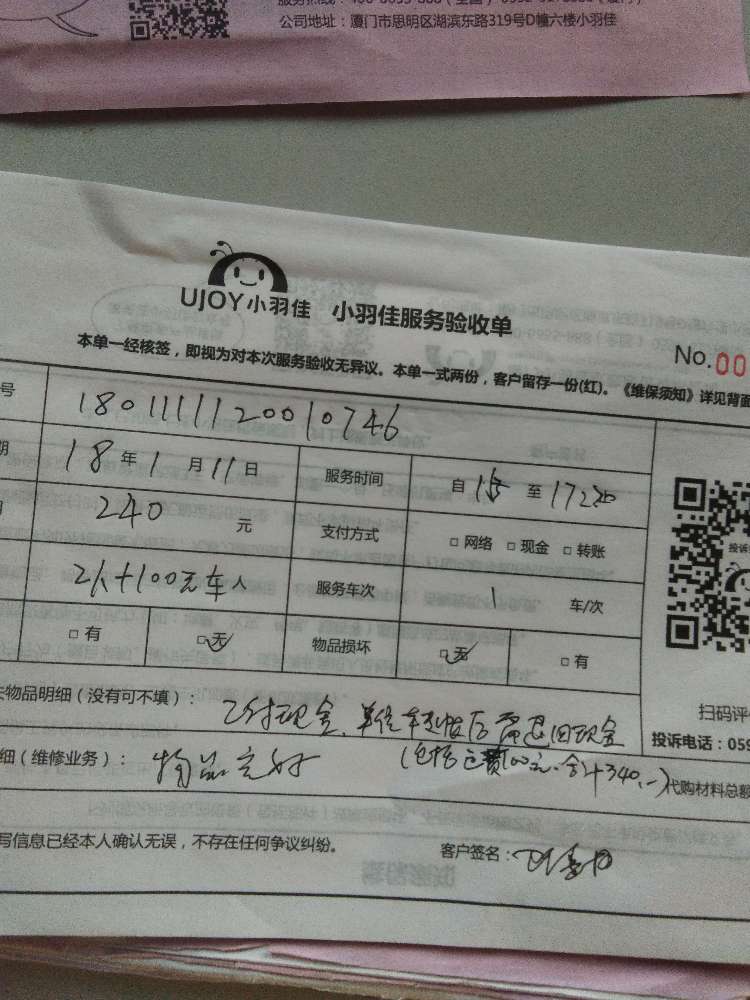 公司地址：厦门市思明区湖滨东路319号D幢六楼小羽佳
UJOY小羽佳 小羽佳服务验收单
No.00
本单一经核签，即视为对本次服务验收无异议。本单一式两份，客户留存一份(红)。《维保须知》详见背面
号 18011111120010746
期 18年1月11日 服务时间 自 15 至 17:20
240 元 支付方式 □网络 □现金 □转账
2人+100元车 人 服务车次 1 车/次
□有 □无 物品损坏 □无 □有
物品明细（没有可不填）： 已付现金、单位转账后需退回现金
扫码评
（包括运费100元、合计340.-）
投诉电话：059
细（维修业务）： 物品完好
代购材料总额
写信息已经本人确认无误，不存在任何争议纠纷。 客户签名：